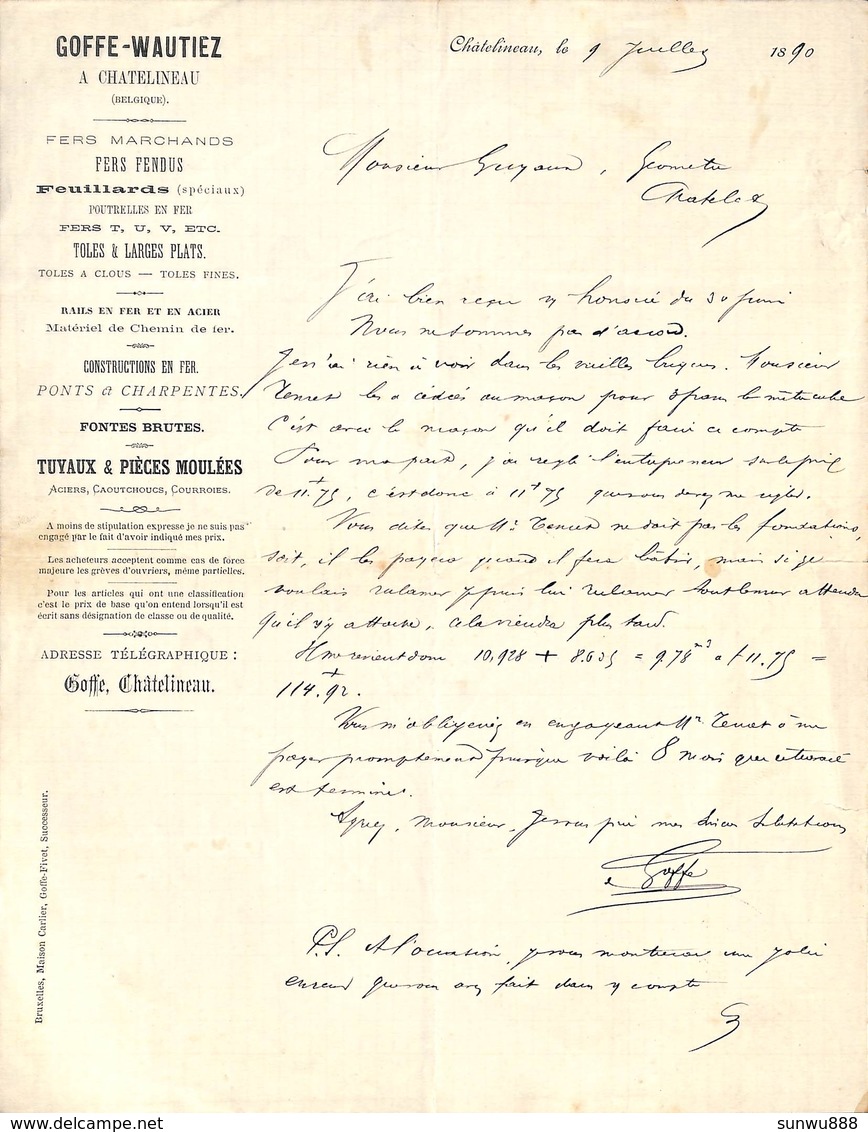 GOFFE-WAUTIEZ
A CHATELINEAU
(BELGIQUE).
FERS MARCHANDS
FERS FENDUS
Feuillards (spéciaux)
POUTRELLES EN FER
FERS T, U, V, ETC.
TOLES & LARGES PLATS.
TOLES A CLOUS — TOLES FINES.
RAILS EN FER ET EN ACIER
Matériel de Chemin de fer.
CONSTRUCTIONS EN FER.
PONTS & CHARPENTES.
FONTES BRUTES.
TUYAUX & PIÈCES MOULÉES
ACIERS, CAOUTCHOUCS, COURROIES.
A moins de stipulation expresse je ne suis pas
engagé par le fait d'avoir indiqué mes prix.
Les acheteurs acceptent comme cas de force
majeure les grèves d'ouvriers, même partielles.
Pour les articles qui ont une classification
c'est le prix de base qu'on entend lorsqu'il est
écrit sans désignation de classe ou de qualité.
ADRESSE TÉLÉGRAPHIQUE :
Goffe, Châtelineau.
Bruxelles, Maison Carlier, Goffe-Fivet, Successeur.
Châtelineau, le 9 Juillet 1890
Monsieur Guyaux, Géomètre
Chatelet
J'ai bien reçu v/ honorée du 30 juin
Nous ne sommes pas d'accord.
Je n'ai rien à voir dans les vieilles briques. Monsieur
les a cédées au maçon pour 3 francs le mètre cube
C'est avec le maçon qu'il doit faire ce compte
Pour ma part, j'ai reglé l'entrepreneur sur le prix
de 11.75, c'est donc à 11 75 que vous devez me regler.
Vous dites que Mr. ne doit pas les fondations,
soit, il les payera quand il fera bâtir, mais si je
voulais réclamer je puis lui réclamer tout le mur attendu
qu'il s'y attache, cela viendra plus tard.
Il me revient donc 10,928 + 8.635 = 9.78 m3 à f 11.75 =
114.92.
Vous m'obligeriez en engageant Mr à me
payer promptement puisque voilà 8 mois que ce travail
est terminé.
Agréez, Monsieur, je vous prie mes Salutations
Goffe
P.S. A l'occasion, je vous montrerai une jolie
erreur que vous avez fait dans v/ compte
G
sunwu888